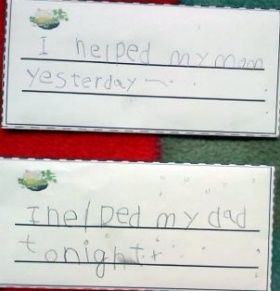 I helped my mom
yesterday
I helped my dad
tonight